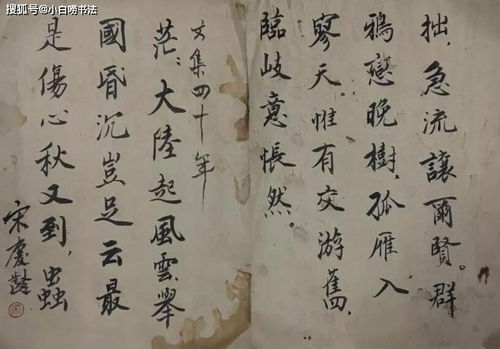 搜狐号@小白唠书法
拙，急流讓爾賢。群
鴉戀晚樹，孤雁入
寥天。惟有交游舊，
臨岐意悵然。
文集四十年
茫〻大陸起風雲舉
國昏沉豈足云最
是傷心秋又到，蟲
宋慶齡